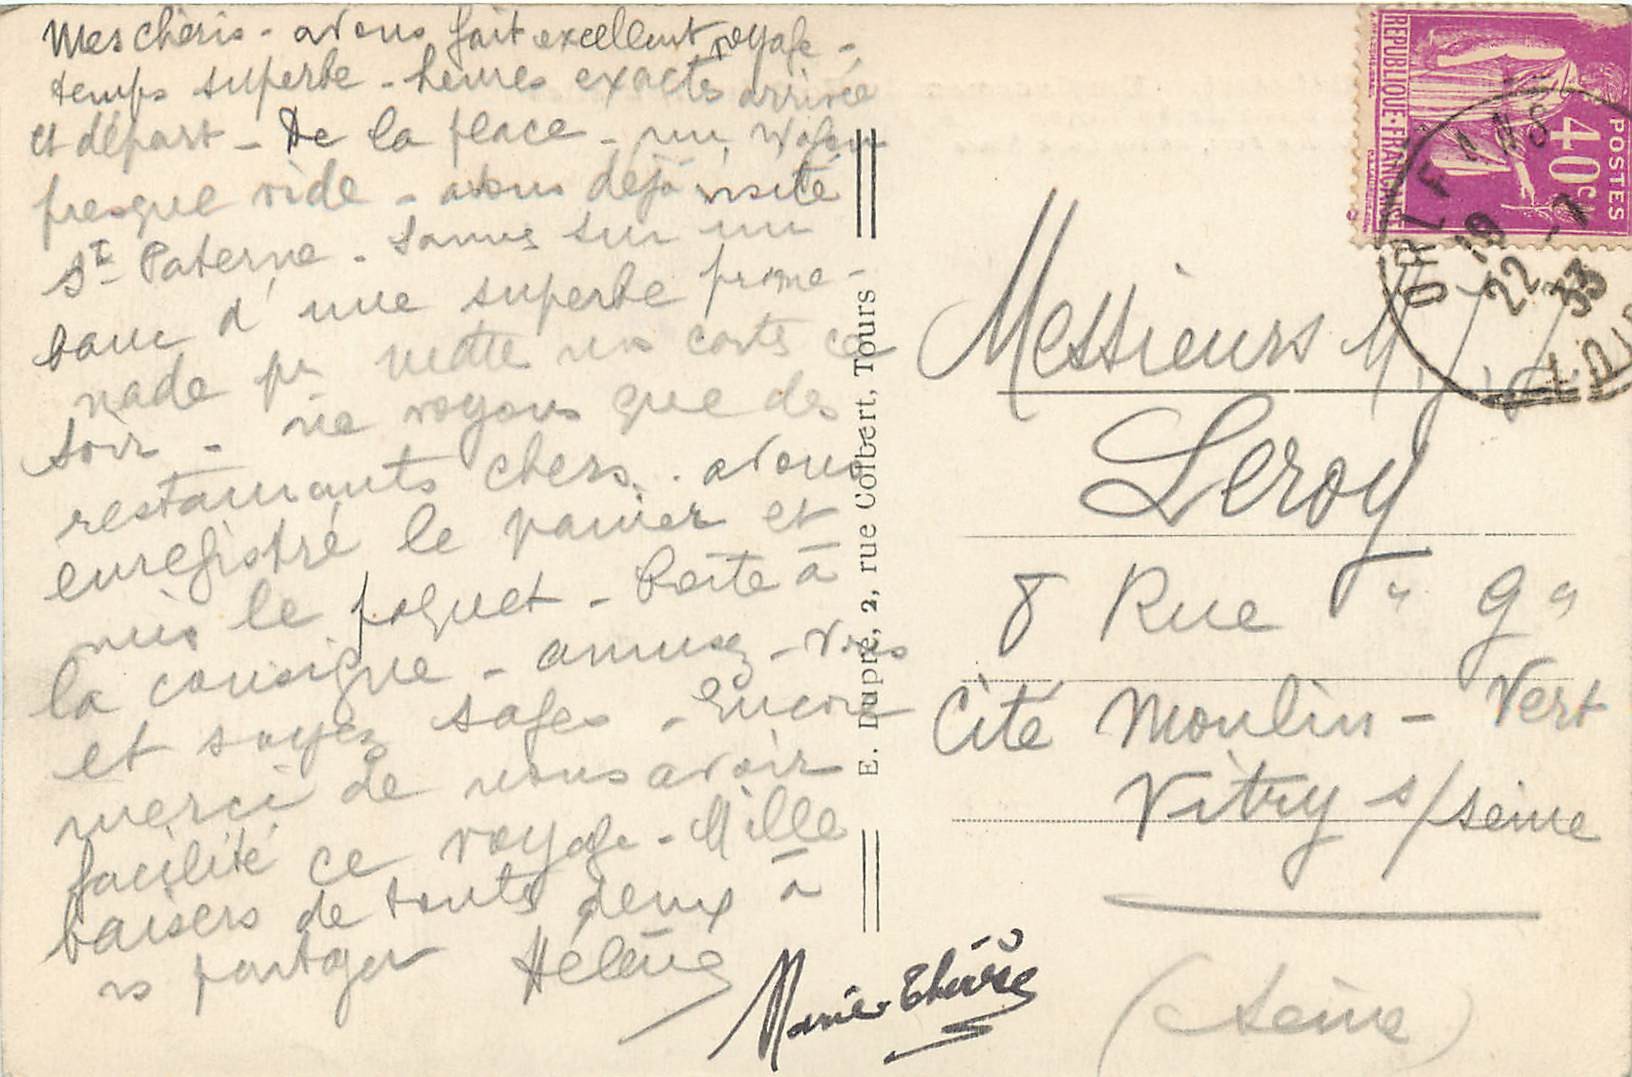 Mes chéris - avons fait excellent voyage -
temps superbe - heures exactes arrivée
et départ - De la place - un wagon
presque vide - avons déjà visité
St Paterne - sommes sur un
banc d'une superbe prome-
nade pr mettre nos cartes ce
soir - ne voyons que des
restaurants chers. avons
enregistré le panier et
mis le paquet - Reste à
la consigne - amusez-vous
et soyez sages - Encore
merci de nous avoir
facilité ce voyage - Mille
baisers de toutes deux à
vs partager Hélène
Marie Thérèse
E. Dupré, 2, rue Colbert, Tours
REPUBLIQUE·FRANÇAISE
POSTES
40c
19
22 -7
33
Messieurs M. J.
Leroy
8 Rue "G"
Cité Moulin-Vert
Vitry s/seine
(Seine)